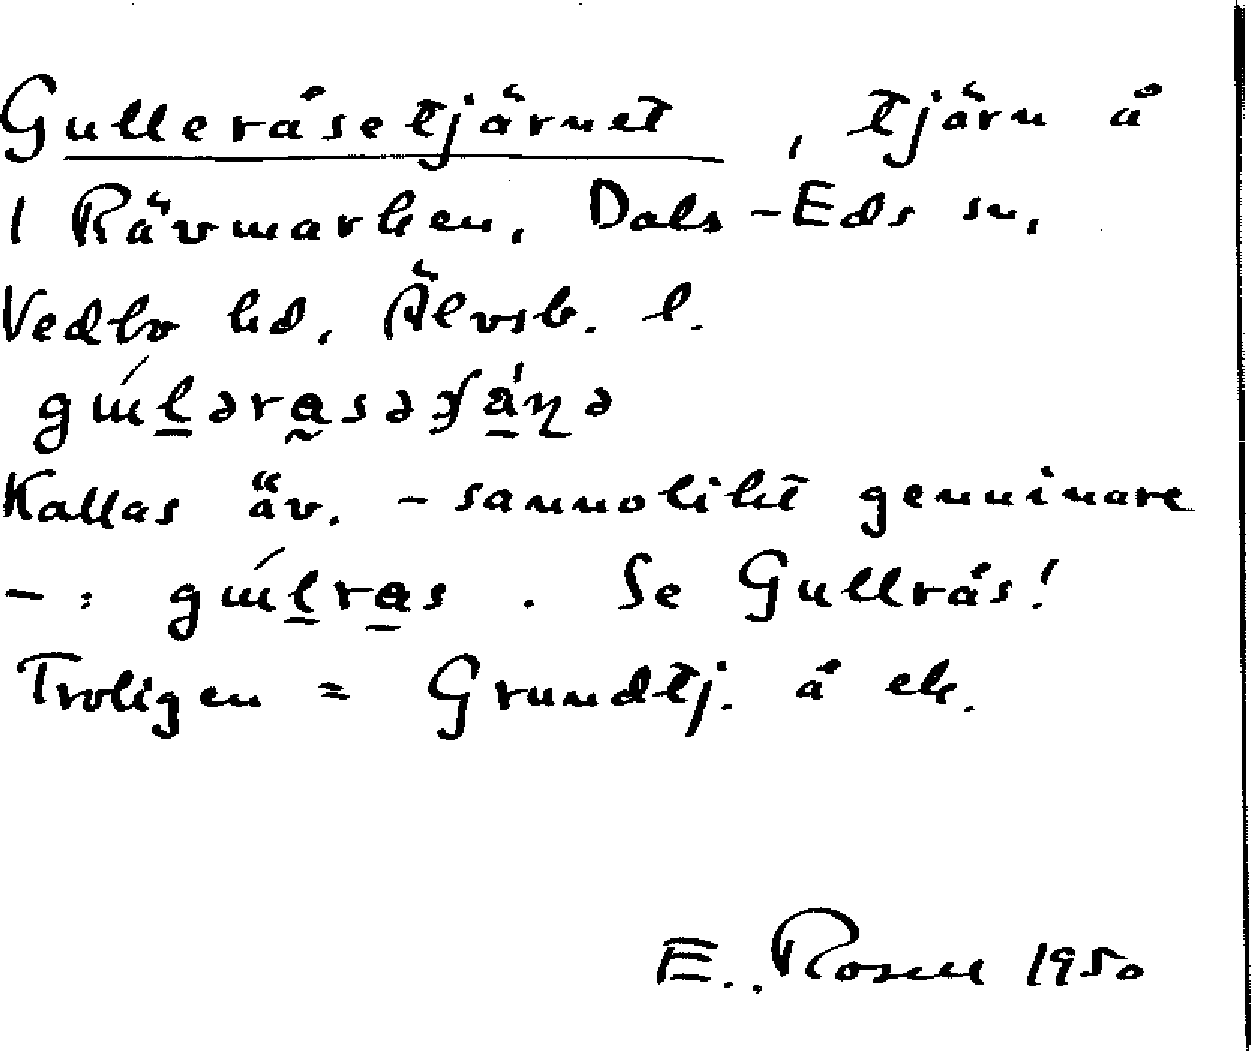 Gulleråsetjärnet, tjärn å
1 Rävmarken, Dals-Eds sn,
Vedbo hd, Älvsb. l.
Kallas äv. - sannolikt genuinare
- : . Se Gullrås!
Troligen = Grundtj. å ek.
E. Rosell 1950